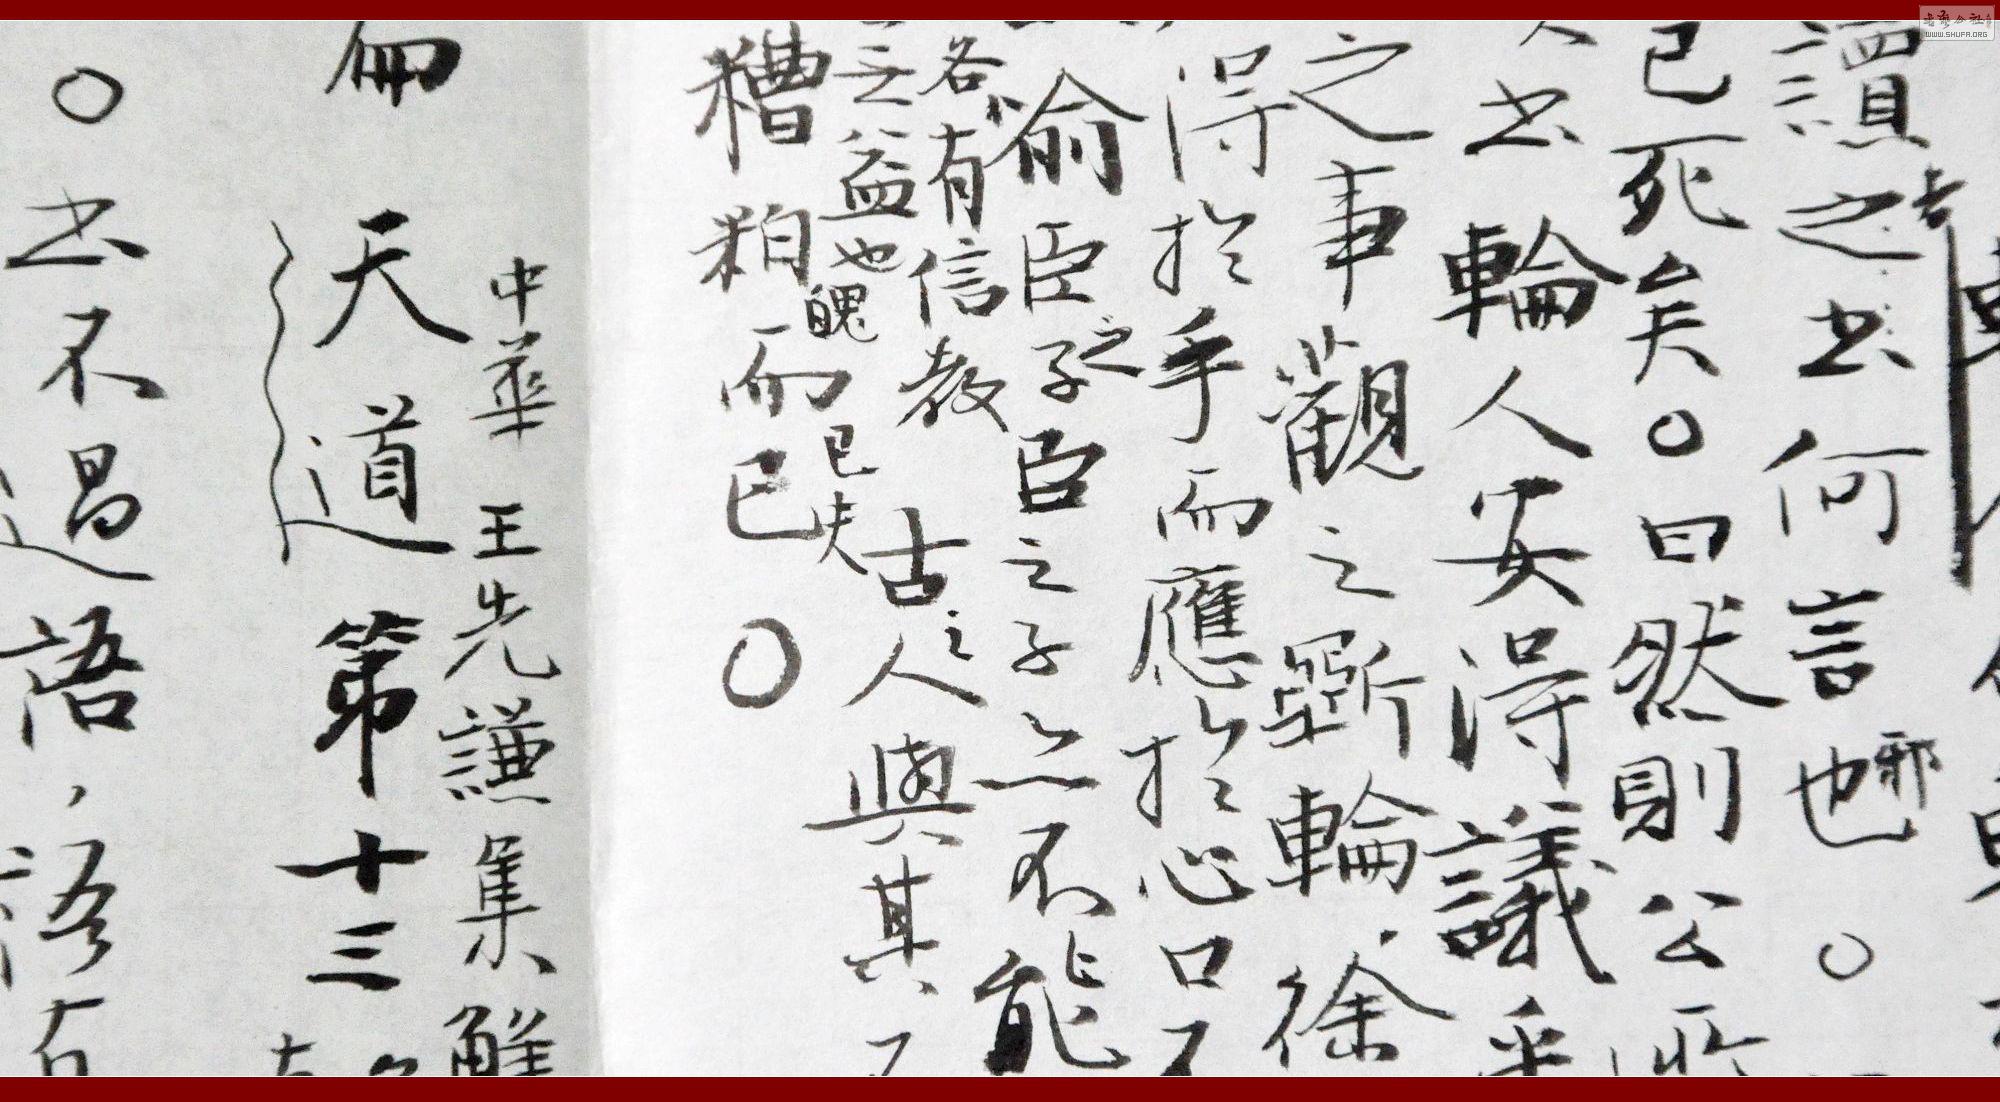 讀之者书何言也邪
已死矣。曰然則公所
书輪人安得議乎
之事觀之斲輪徐
得扵手而應扵心口不
喻臣之子臣之子亦不能
各有信教古之人與其不
之益也魄已夫
糟粕而已
中華 王先謙集解
天道第十三
书不過語,語有
書藝公社
WWW.SHUFA.ORG